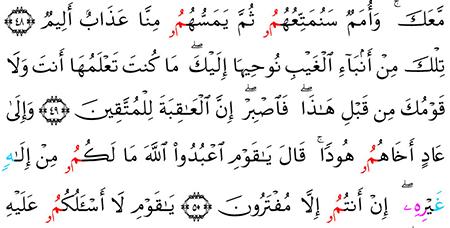 مَّعَكَۚ وَأُمَمٞ سَنُمَتِّعُهُمُۥ ثُمَّ يَمَسُّهُمُۥ مِنَّا عَذَابٌ أَلِيمٞ ٤٨
تِلۡكَ مِنۡ أَنۢبَآءِ ٱلۡغَيۡبِ نُوحِيهَآ إِلَيۡكَۖ مَا كُنتَ تَعۡلَمُهَآ أَنتَ وَلَا
قَوۡمُكَ مِن قَبۡلِ هَٰذَاۖ فَٱصۡبِرۡۖ إِنَّ ٱلۡعَٰقِبَةَ لِلۡمُتَّقِينَ ٤٩ وَإِلَىٰ
عَادٍ أَخَاهُمُۥ هُودٗاۚ قَالَ يَٰقَوۡمِ ٱعۡبُدُواْ ٱللَّهَ مَا لَكُمُۥ مِنۡ إِلَٰهٍ
غَيۡرِهِۦٓۖ إِنۡ أَنتُمُۥٓ إِلَّا مُفۡتَرُونَ ٥٠ يَٰقَوۡمِ لَآ أَسۡـَٔلُكُمُۥ عَلَيۡهِ